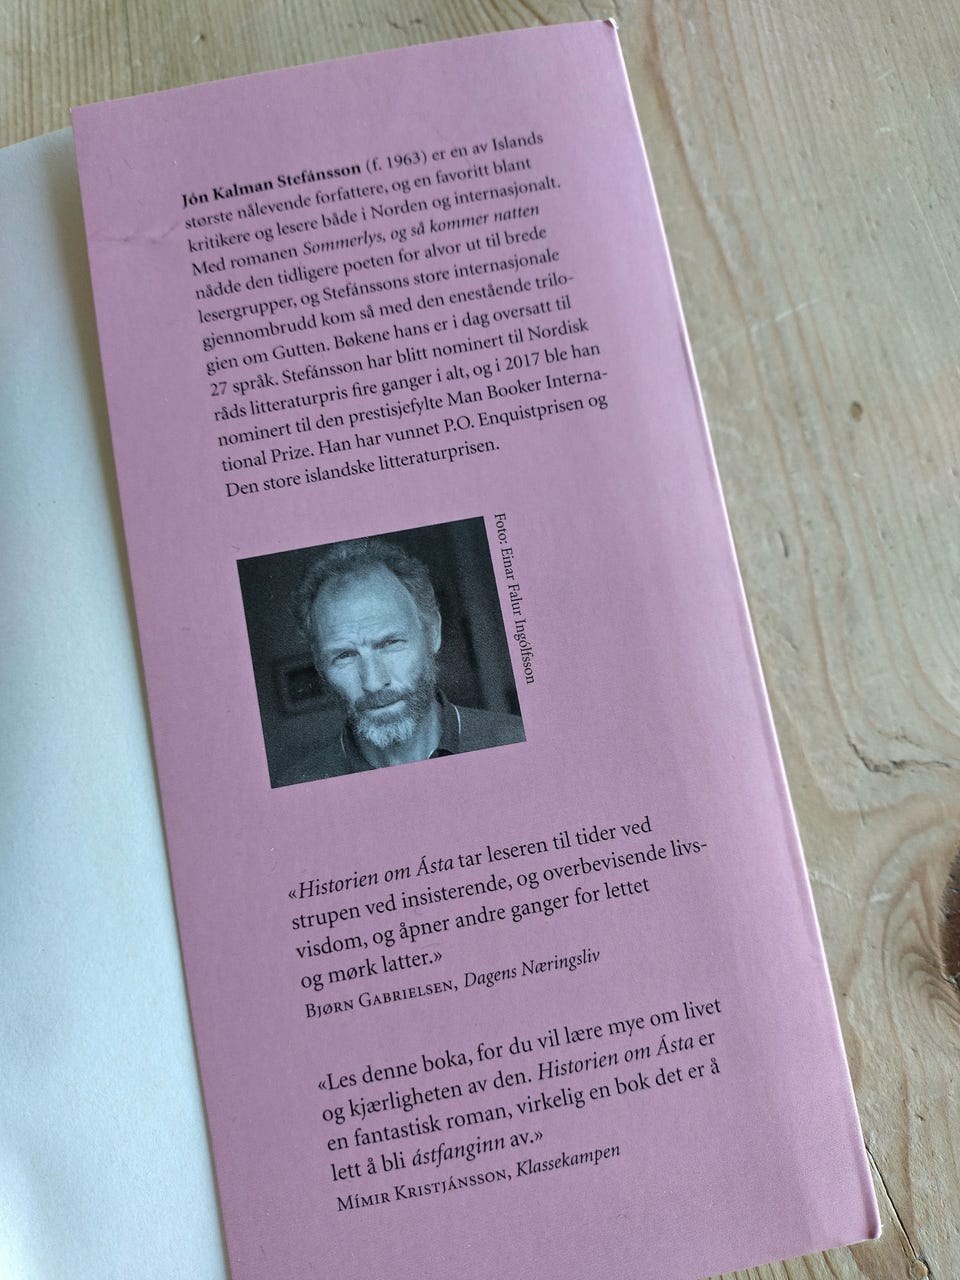 Jón Kalman Stefánsson (f. 1963) er en av Islands
største nålevende forfattere, og en favoritt blant
kritikere og lesere både i Norden og internasjonalt.
Med romanen Sommerlys, og så kommer natten
nådde den tidligere poeten for alvor ut til brede
lesergrupper, og Stefánssons store internasjonale
gjennombrudd kom så med den enestående trilo-
gien om Gutten. Bøkene hans er i dag oversatt til
27 språk. Stefánsson har blitt nominert til Nordisk
råds litteraturpris fire ganger i alt, og i 2017 ble han
nominert til den prestisjefylte Man Booker Interna-
tional Prize. Han har vunnet P.O. Enquistprisen og
Den store islandske litteraturprisen.
Foto: Einar Falur Ingólfsson
«Historien om Ásta tar leseren til tider ved
strupen ved insisterende, og overbevisende livs-
visdom, og åpner andre ganger for lettet
og mørk latter.»
Bjørn Gabrielsen, Dagens Næringsliv
«Les denne boka, for du vil lære mye om livet
og kjærligheten av den. Historien om Ásta er
en fantastisk roman, virkelig en bok det er å
lett å bli ástfanginn av.»
Mímir Kristjánsson, Klassekampen